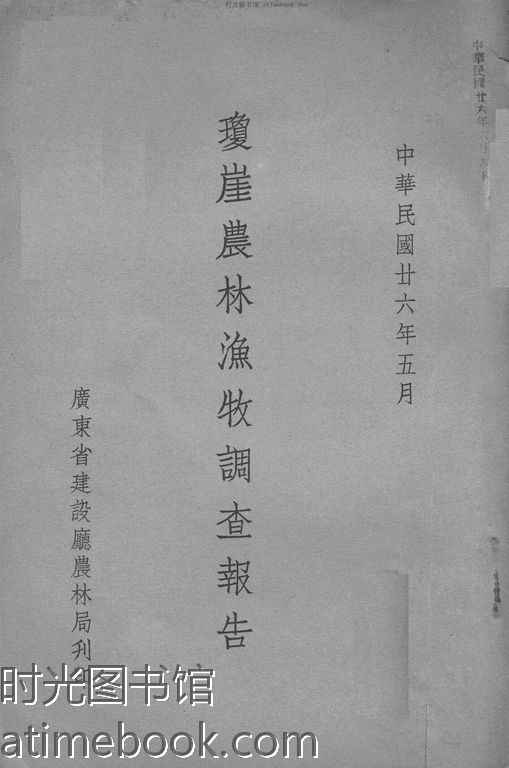 中華民國廿六年
中華民國廿六年五月
瓊崖農林漁牧調查報告
廣東省建設廳農林局刋
时光图书馆
atimebook.com